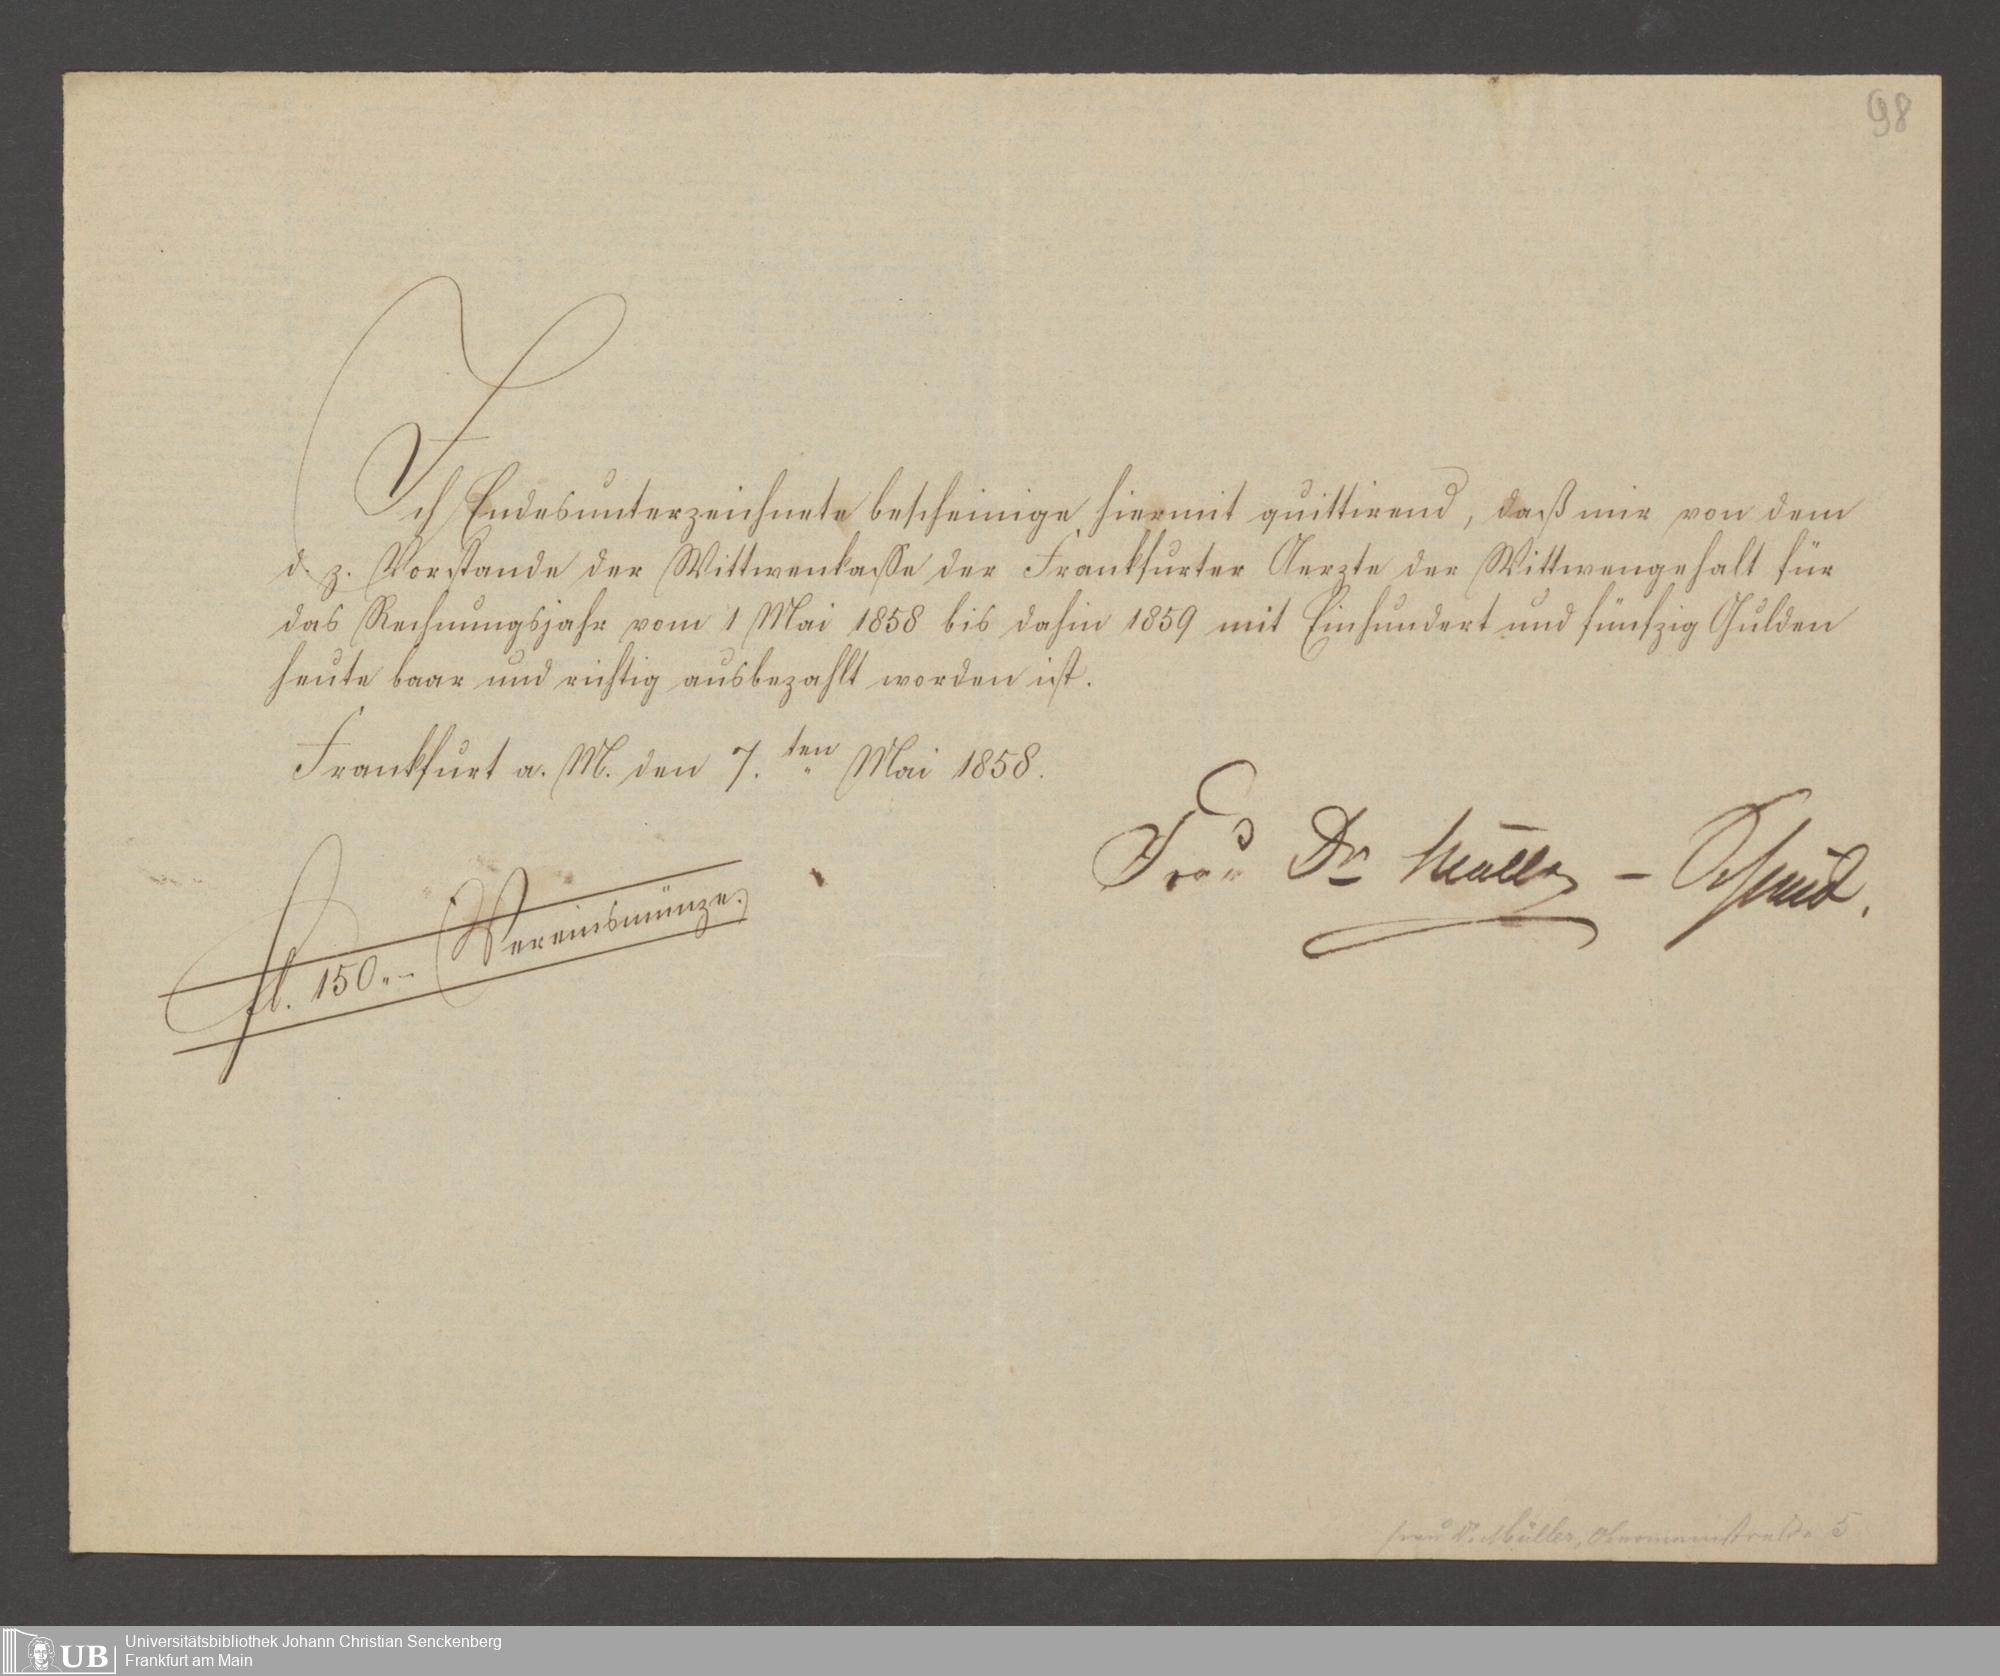 98
Ich Endesunterzeichnete bescheinige hiermit quittirend, daß mir von dem
d. z. Vorstande der Wittwenkasse der Frankfurter Aerzte der Wittwengehalt für
das Rechnungsjahr vom 1 Mai 1858 bis dahin 1859 mit Einhundert und fünfzig Gulden
heute baar und richtig ausbezahlt worden ist.
Frankfurt a. M. den 7.ten Mai 1858.
Frau Dr Müller –
fl. 150.– Vereinsmünze.
Frau Dr. Müller, Obermainstraße 5
UB Universitätsbibliothek Johann Christian Senckenberg
Frankfurt am Main